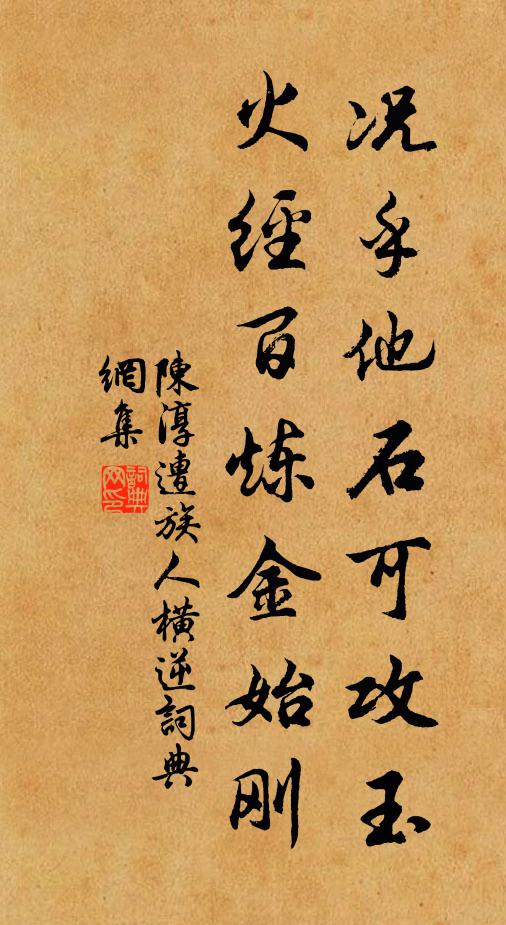 况乎他石可攻玉
火經百炼金始刚
陳淳遭族人橫逆詞典
網集
詞典网印